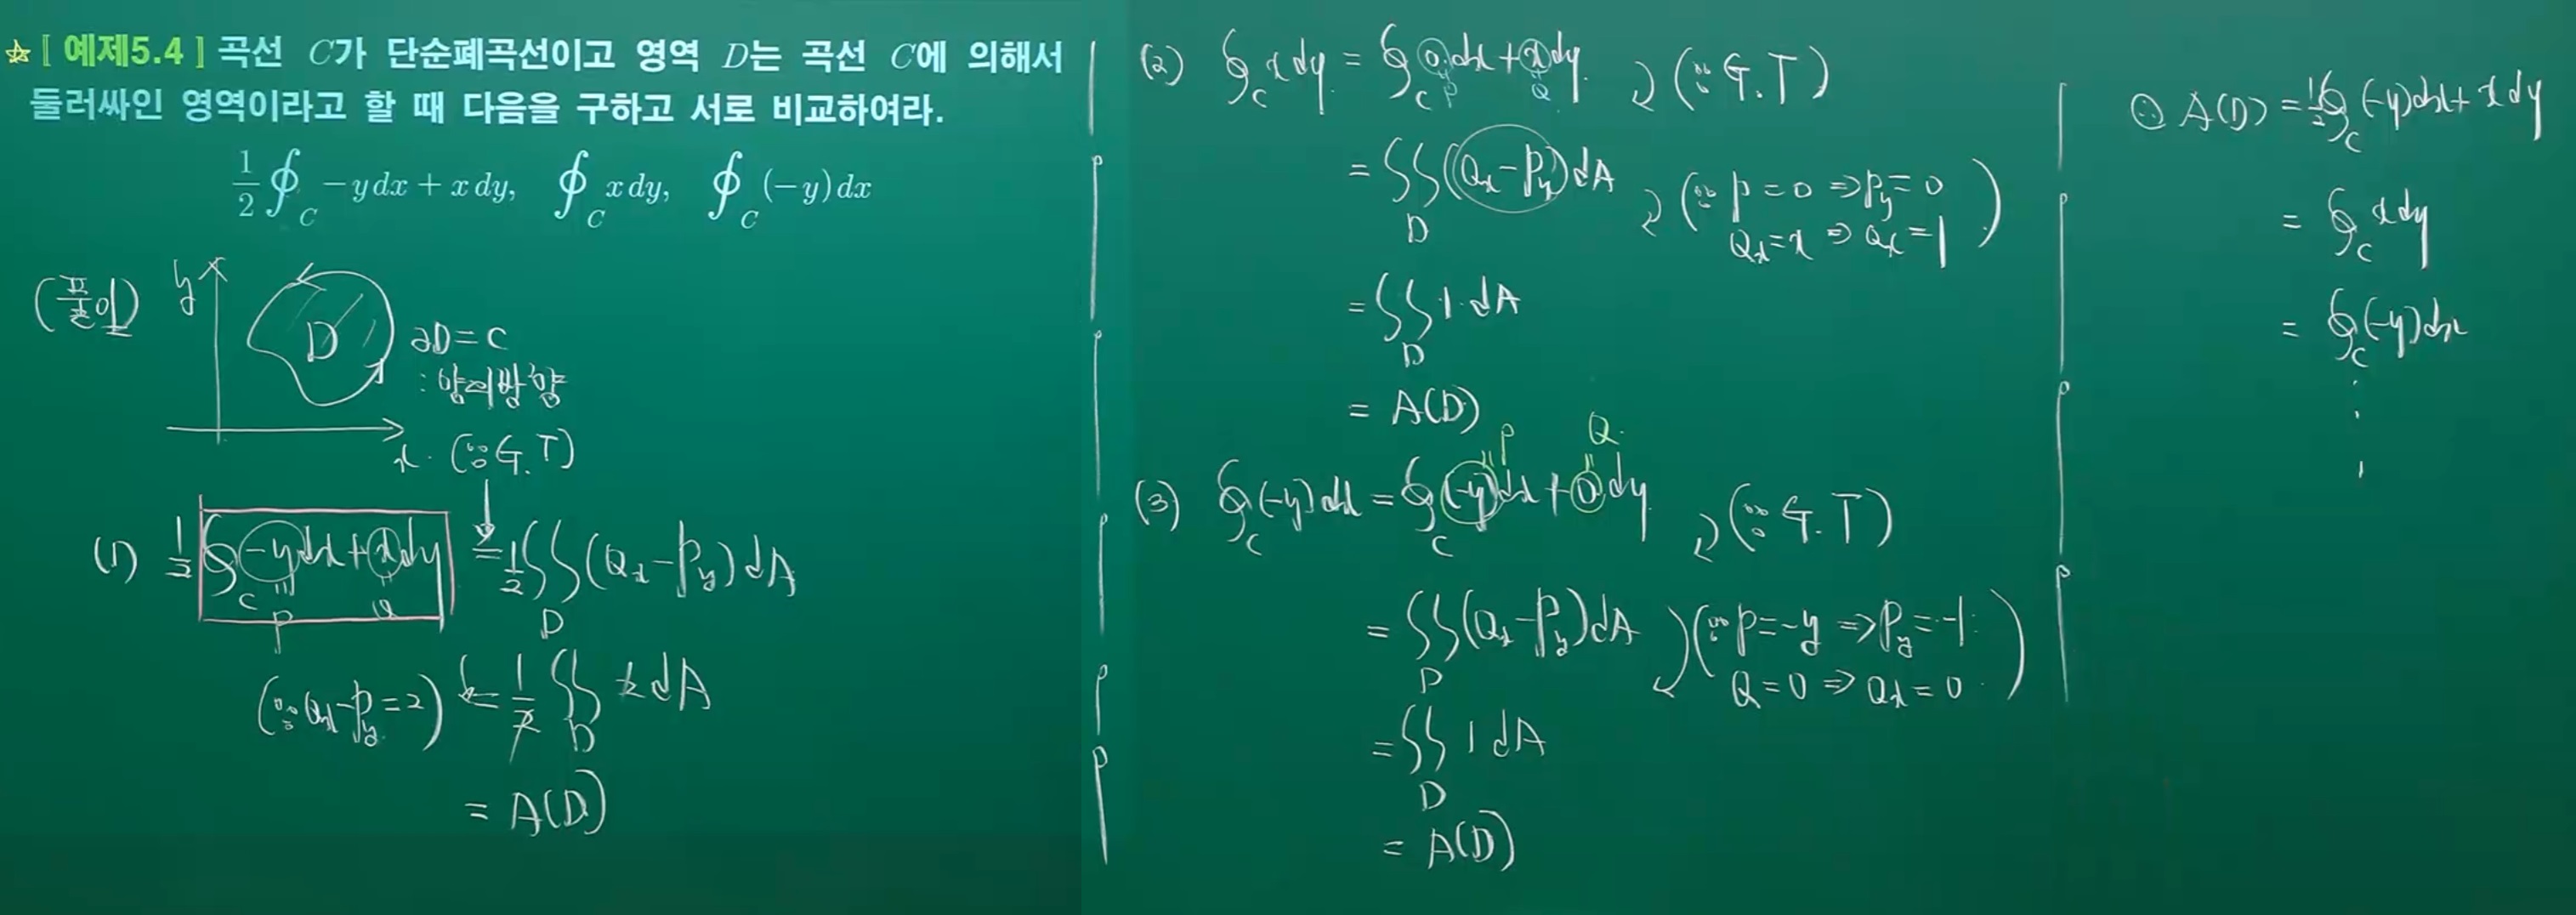 ☆[ 예제5.4 ] 곡선 C가 단순폐곡선이고 영역 D는 곡선 C에 의해서
둘러싸인 영역이라고 할 때 다음을 구하고 서로 비교하여라.
1/2 ∮_C −y dx + x dy, ∮_C x dy, ∮_C (−y) dx
(풀이)
y
D
∂D = C
: 양의방향
x
(∵ G.T)
(1) 1/2 ∮_C −y dx + x dy = 1/2 ∬_D (Q_x − P_y) dA
P Q
(∵ Q_x − P_y = 2) ← = 1/2 ∬_D 2 dA
= A(D)
(2) ∮_C x dy = ∮_C 0·dx + x dy (∵ G.T)
P Q
= ∬_D (Q_x − P_y) dA (∵ P = 0 ⇒ P_y = 0
Q_x = x ⇒ Q_x = 1)
= ∬_D 1·dA
= A(D)
P Q
(3) ∮_C (−y) dx = ∮_C (−y) dx + 0 dy (∵ G.T)
= ∬_D (Q_x − P_y) dA (∵ P = −y ⇒ P_y = −1
Q = 0 ⇒ Q_x = 0)
= ∬_D 1 dA
= A(D)
∴ A(D) = 1/2 ∮_C (−y) dx + x dy
= ∮_C x dy
= ∮_C (−y) dx
⋮